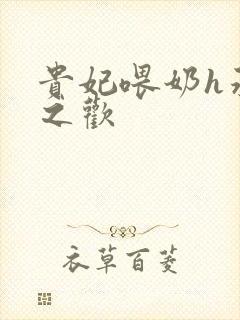 貴妃喂奶h
之歡
衣草百菱